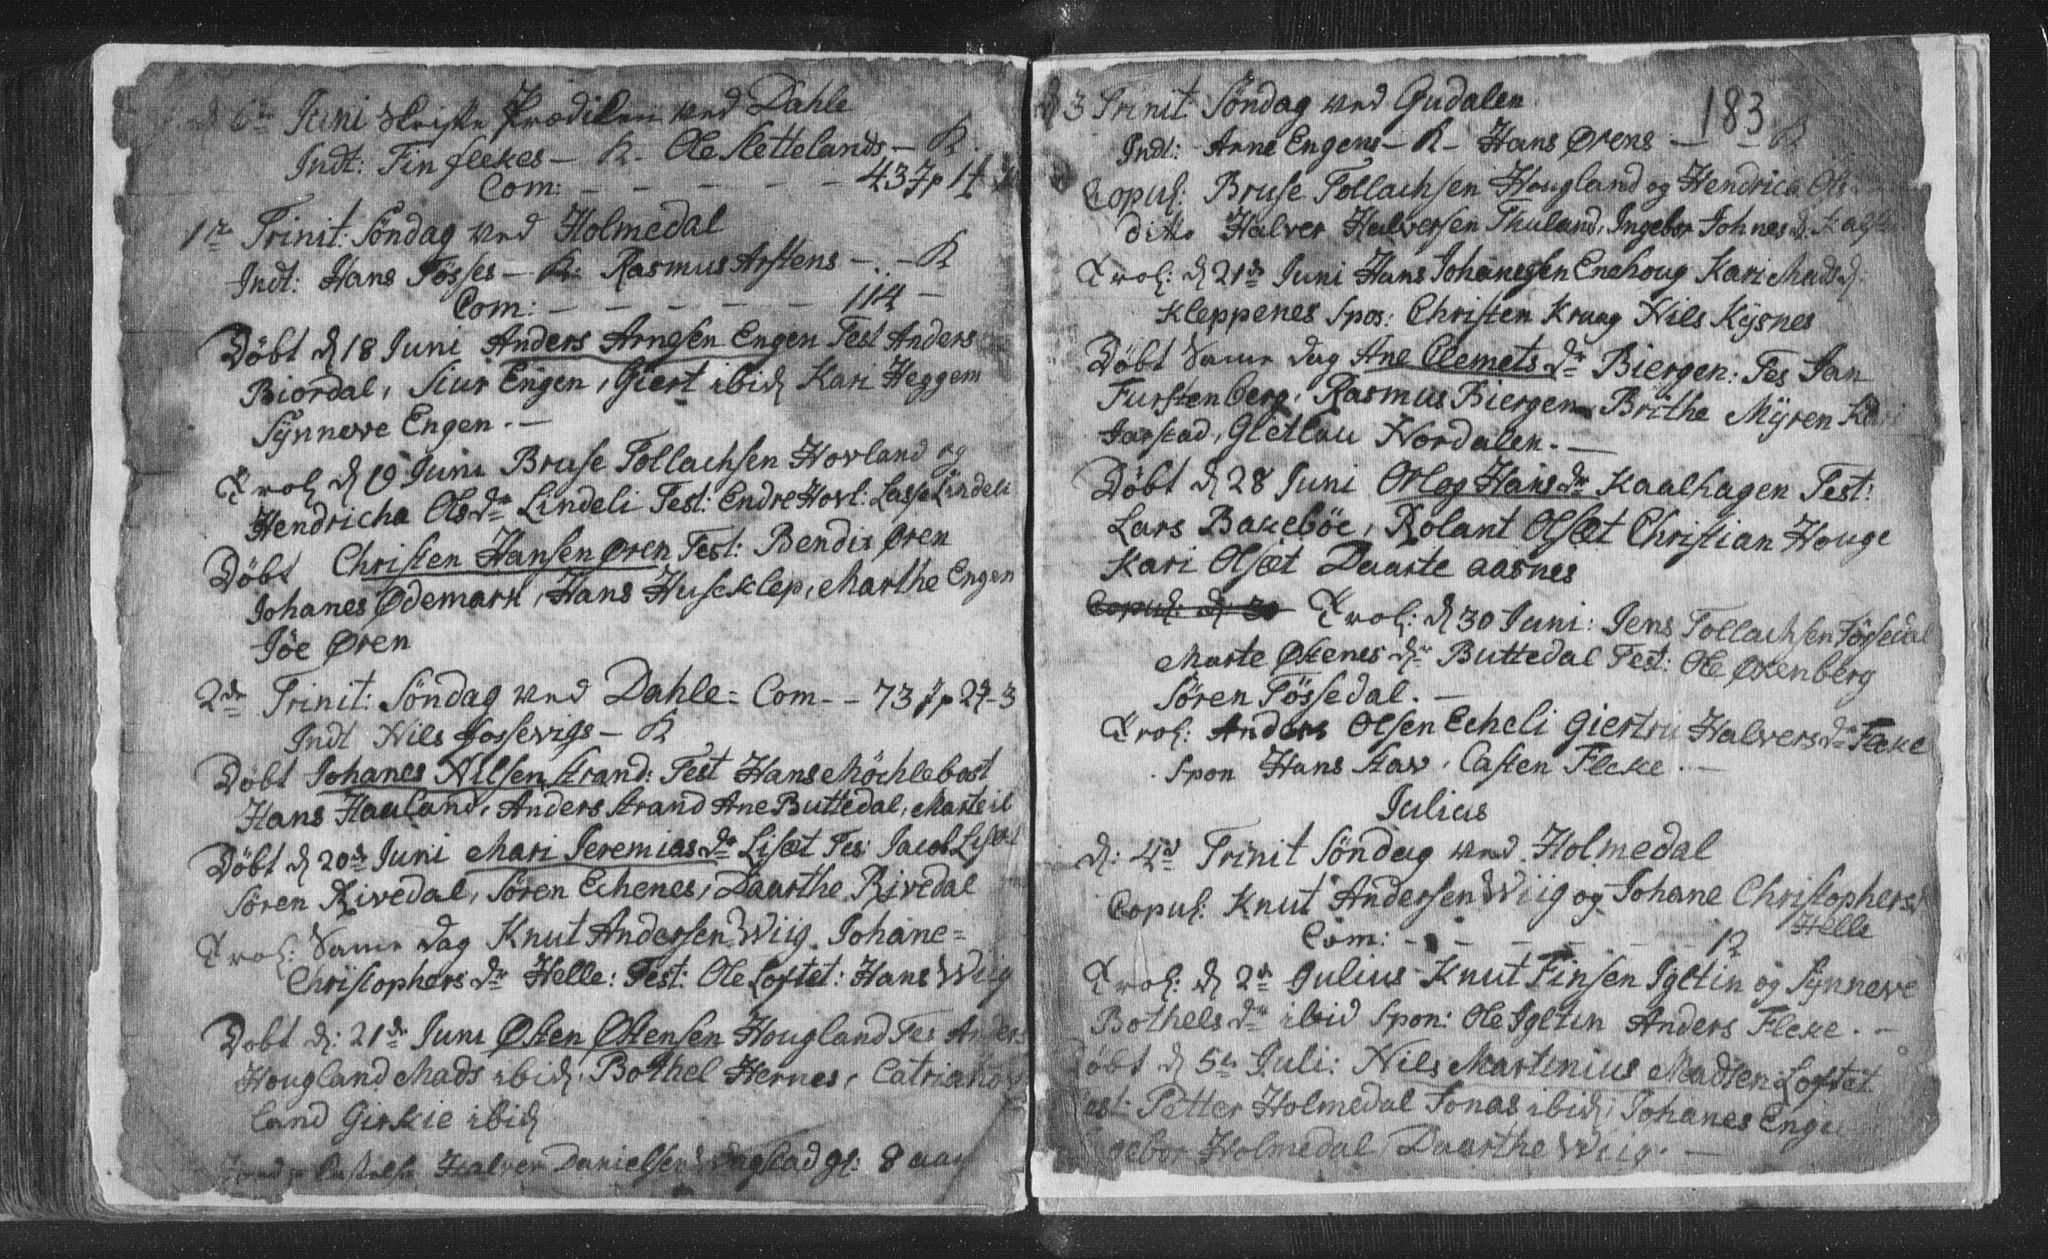 d 6te Juni Skrifte Prædiken ved Dahle
Indt: Fin flekes – K – Ole Slettelands – K.
Com: – – – – – 437p 14
1te Trinit: Söndag ved Holmedal
Indt: Hans Tösses – K: Rasmus Arstens – . – K
Com: – – – – – 114 –
Döbt d 18 Juni Anders Arnesen Engen Test Anders
Biordal, Siur Engen, Giert ibid Kari Heggem
Sÿnneve Engen. –
Trol d 19 Juni Bruse Tollachsen Hovland og
Hendricha Olsdr Lindeli Test: Endre Hovl: Lasse Lindeli
Döbt Christen Hansen Øren Test: Bendix Øren
Johanes Ødemark, Hans Huseklep, Marthe Engen
Jöe Øren
2de Trinit: Söndag ved Dahle = Com – – 73
Indt Nils fossevigs – K
Döbt Johanes Nilsen Strand: Test Hans Möchlebost
Hans Haaland, Anders Strand Ane Buttedal, Marte
Döbt d 20de Juni Mari Jeremiasdr Lisæt Tes: Jacob Lisæt
Sören Rivedal, Sören Echenes, Daarthe Rivedal
Trol: Same dag Knut Andersen Wiig Johane =
Christophersdr Helle: Test: Ole Loftet: Hans Wiig
Döbt d: 21de Juni Østen Østensen Hougland Tes Anders
Hougland Mads ibid, Bothel Hernes, Catria
land Girkie ibid
Halver Danielsen Vagstad gl: 8 aar
183
d 3 Trinit: Söndag ved Gudalen
Indt: Arne Engens – K – Hans Ørens – – K
Copul: Bruse Tollachsen Hougland og Hendricha Ols
ditto Halver Halversen Thuland, Ingebor Johnesd:
Trol: d 21de Juni Hans Johanesen Enehoug Kari Madsd:
Kleppenes Spos: Christen Krang Nils Kÿsnes
Döbt Same dag Ane Clemetsdr Biergen: Tes Jan
Furstenberg, Rasmus Biergen Brithe Mÿren Kari
Jarstad, Gletlau Nordalen. –
Döbt d 28 Juni Orlog Hansdr Kaalhagen Test:
Lars Bakeböe, Rolant Olsæt Christian Houge
Kari Olsæt Daarte aasnes
Copul: d: 30 Trol: d 30 Juni: Jens Tollachsen Tössedal
Marte Østenesdr Buttedal Test: Ole Øxenberg
Sören Tössedal. –
Trol: Anders Olsen Echeli Giertru Halversdr Flecke
Spon Hans Stav, Casten Flecke. –
Julius
d: 4de Trinit Söndag ved Holmedal
Copul: Knut Andersen Wiig og Johane Christophersd
Helle
Com: – – – – – 12
Trol: d 2de Julius Knut Finsen Igeltin og Sÿnneve
Bothelsdr ibid Spon: Ole Igeltun Anders Flecke. –
Döbt d 5te Juli: Nils Martinius Madsen Loftet
Test: Petter Holmedal Jonas ibid, Johanes Engen
gebor Holmedal, Daarthe Wiig. –